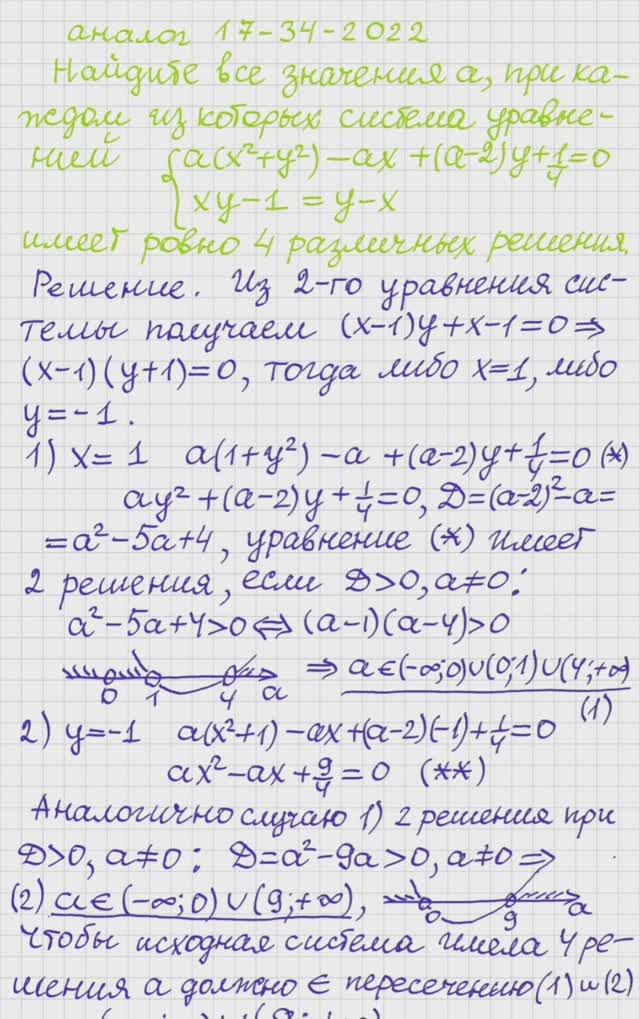 аналог 17-34-2022
Найдите все значения а, при ка-
ждом из которых система уравне-
ний { a(x²+y²)-ax+(a-2)y+1/4=0
xy-1=y-x
имеет ровно 4 различных решения.
Решение. Из 2-го уравнения сис-
темы получаем (x-1)y+x-1=0 ⇒
(x-1)(y+1)=0, тогда либо x=1, либо
y=-1.
1) x=1 a(1+y²)-a+(a-2)y+1/4=0 (*)
ay²+(a-2)y+1/4=0, D=(a-2)²-a=
=a²-5a+4, уравнение (*) имеет
2 решения, если D>0, a≠0:
a²-5a+4>0 ⇔ (a-1)(a-4)>0
0 1 4 a ⇒ a∈(-∞;0)∪(0;1)∪(4;+∞)
(1)
2) y=-1 a(x²+1)-ax+(a-2)(-1)+1/4=0
ax²-ax+9/4=0 (**)
Аналогично случаю 1) 2 решения при
D>0, a≠0: D=a²-9a>0, a≠0 ⇒
(2) a∈(-∞;0)∪(9;+∞), 0 9 a
Чтобы исходная система имела 4 ре-
шения а должно ∈ пересечению (1) и (2)